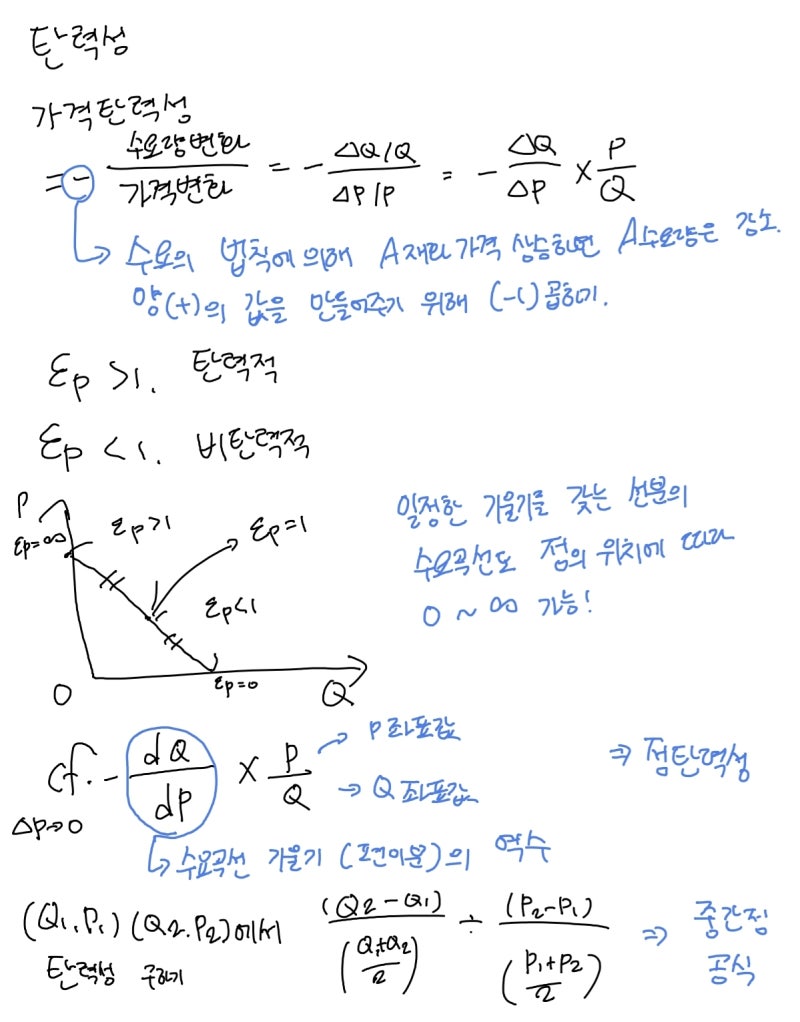 탄력성
가격탄력성
= - 수요량변화 / 가격변화 = - ΔQ/Q / ΔP/P = - ΔQ/ΔP × P/Q
↳ 수요의 법칙에 의해 A재화 가격 상승하면 A수요량은 감소.
양(+)의 값을 만들어주기 위해 (-1)곱하기.
εp >1. 탄력적
εp <1. 비탄력적
P
εp=∞
εp>1
εp=1
εp<1
εp=0
0
Q
일정한 기울기를 갖는 선분의
수요곡선도 점의 위치에 따라
0 ~ ∞ 가능!
cf. - dQ/dP × P/Q
→ P좌표값
→ Q좌표값
⇒ 점탄력성
ΔP→0
↳ 수요곡선 기울기 (도함수)의 역수
(Q1.P1) (Q2.P2)에서 (Q2-Q1) / (Q1+Q2 / 2) ÷ (P2-P1) / (P1+P2 / 2) ⇒ 중간점
탄력성 구하기
공식